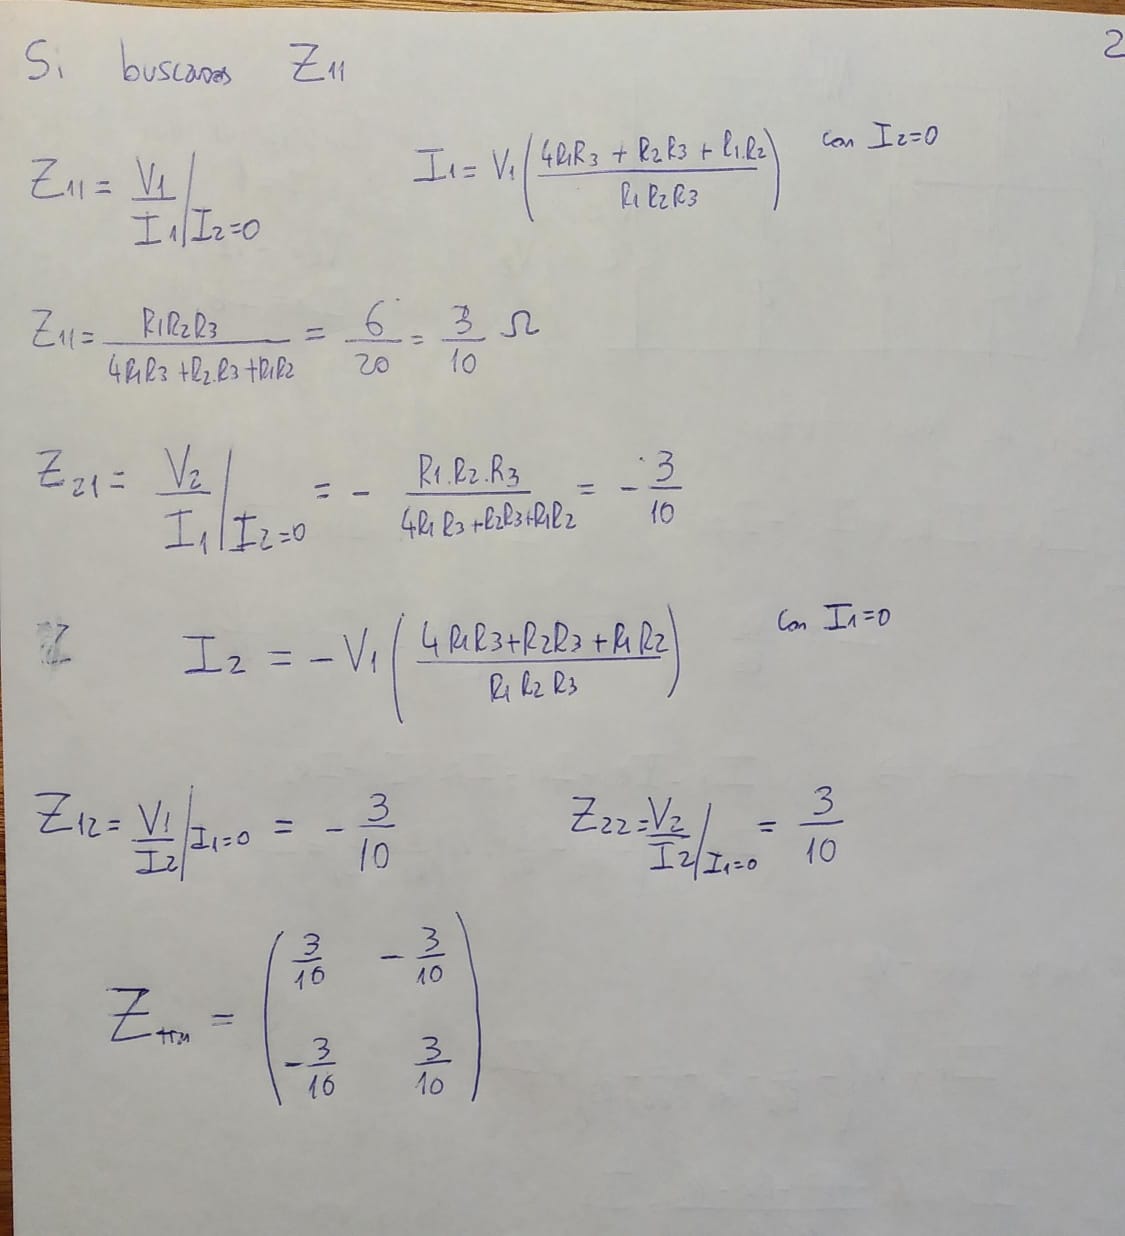 2
Si buscamos Z11
Z11 = V1/I1 | I2=0    I1 = V1 ( (4R1R3 + R2R3 + R1.R2) / (R1 R2R3) )    con I2=0
Z11 = R1R2R3 / (4R1R3 + R2.R3 + R1R2) = 6/20 = 3/10 Ω
Z21 = V2/I1 | I2=0 = - R1.R2.R3 / (4R1 R3 + R2R3 + R1R2) = - 3/10
Z I2 = -V1 ( (4 R1R3 + R2R3 + R1 R2) / (R1 R2 R3) )    con I1=0
Z12 = V1/I2 | I1=0 = - 3/10    Z22 = V2/I2 | I1=0 = 3/10
Z = ( 3/10  - 3/10
- 3/10  3/10 )